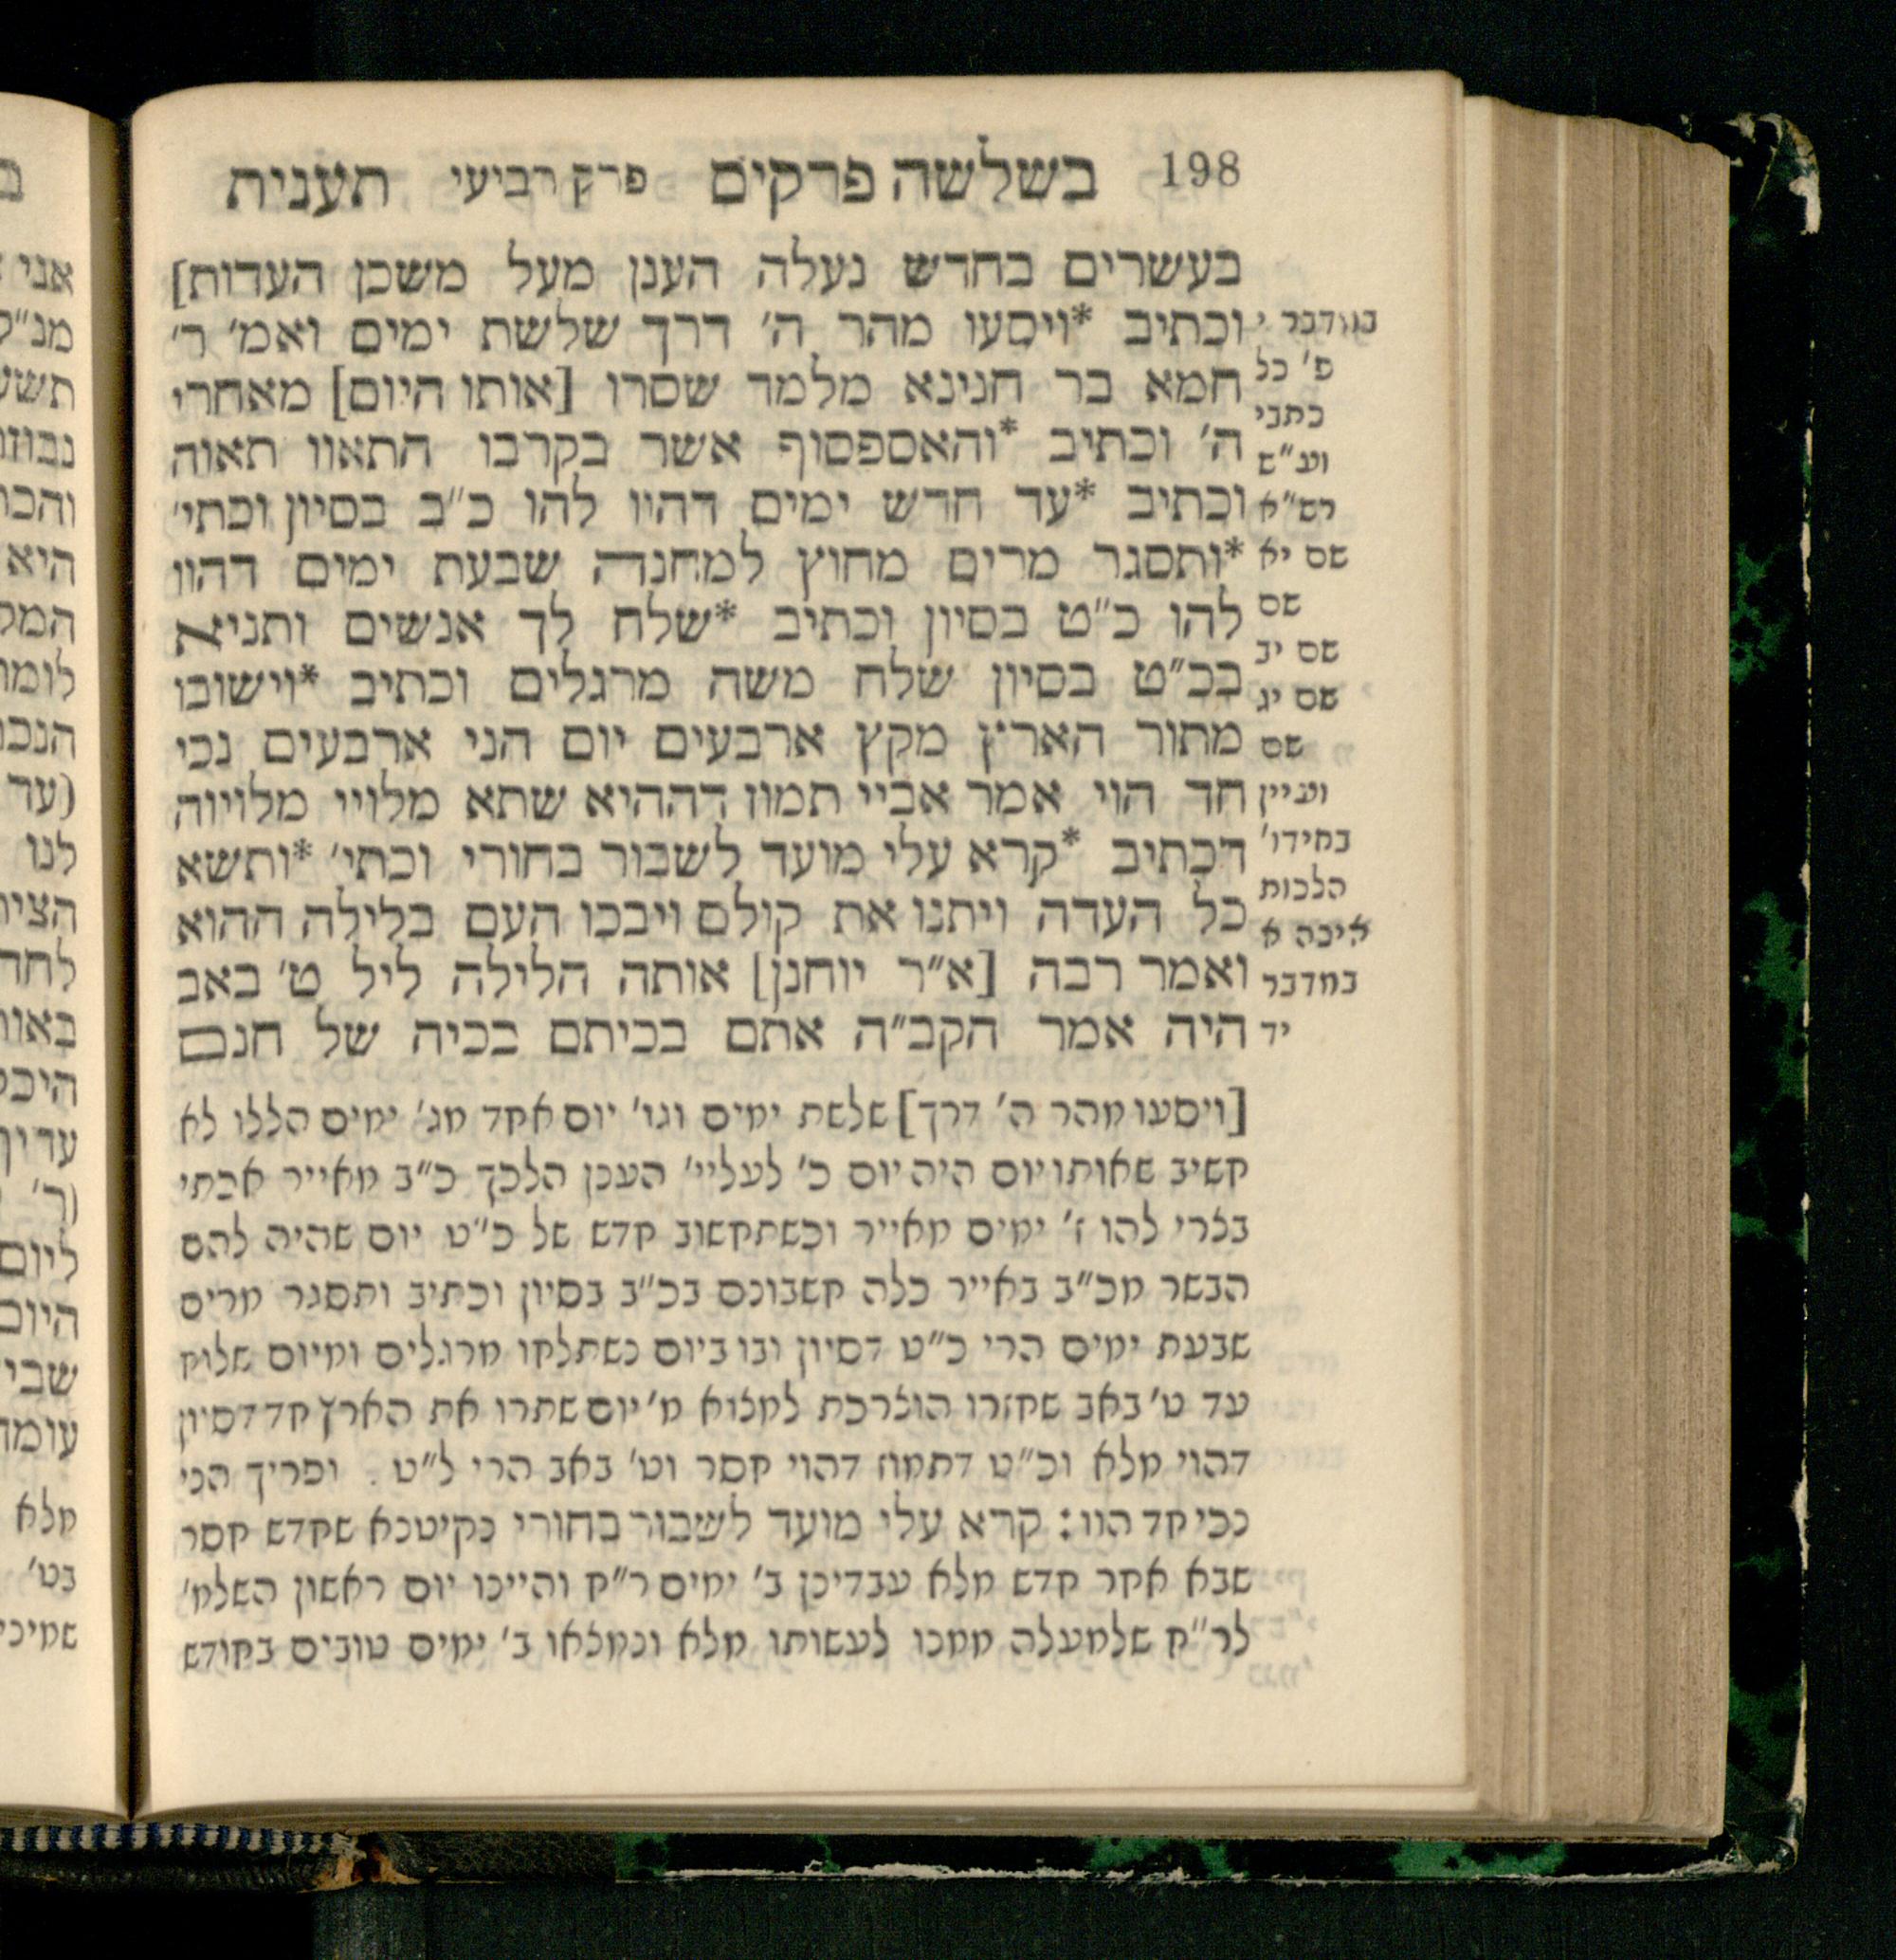 198 בשלשה פרקים פרק רביעי תענית
בעשרים בחדש נעלה הענן מעל משכן העדות]
וכתיב *ויסעו מהר ה׳ דרך שלשת ימים ואמ׳ ר׳
חמא בר חנינא מלמד שסרו [אותו היום] מאחרי
ה׳ וכתיב *והאספסוף אשר בקרבו התאוו תאוה
וכתיב *עד חדש ימים דהיו להו כ״ב בסיון וכתי׳
*ותסגר מרים מחוץ למחנה שבעת ימים דהוו
להו כ״ט בסיון וכתיב *שלח לך אנשים ותניא
בכ״ט בסיון שלח משה מרגלים וכתיב *וישובו
מתור הארץ מקץ ארבעים יום הני ארבעים נכי
חד הוי אמר אביי תמוז דההיא שתא מלויי מלויוה
דכתיב *קרא עלי מועד לשבור בחורי וכתי׳ *ותשא
כל העדה ויתנו את קולם ויבכו העם בלילה ההוא
ואמר רבה [א״ר יוחנן] אותה הלילה ליל ט׳ באב
היה אמר הקב״ה אתם בכיתם בכיה של חנם
במדבר י
פ׳ כל
כתבי
וע״ש
רש״א
שם יא
שם
שם יב
שם יג
שם
ועיין
בחידו׳
הלכות
איכה א
במדבר
יד
[ויסעו מהר ה׳ דרך] שלשת ימים וגו׳ יום אחד מג׳ ימים הללו לא
חשיב שאותו יום היה יום כ׳ לעליי׳ הענן הלכך כ״ב מאייר אכתי
בצרי להו ז׳ ימים מאייר וכשתחשוב חדש של כ״ט יום שהיה להם
הבשר מכ״ב באייר כלה חשבונם בכ״ב בסיון וכתיב ותסגר מרים
שבעת ימים הרי כ״ט דסיון ובו ביום נשתלחו מרגלים ומיום שלוח
עד ט׳ באב שחזרו הוצרכת למצוא מ׳ יום שתרו את הארץ חד דסיון
דהוי מלא וכ״ט דתמוז דהוי חסר וט׳ באב הרי ל״ט . ופריך הני
נכי חד הוו: קרא עלי מועד לשבור בחורי נקיטנא שחדש חסר
שבא אחר חדש מלא עבדינן ב׳ ימים ר״ח והיינו יום ראשון השלמ׳
לר״ח שלמעלה ממנו לעשותו מלא ונמצאו ב׳ ימים טובים בחודש